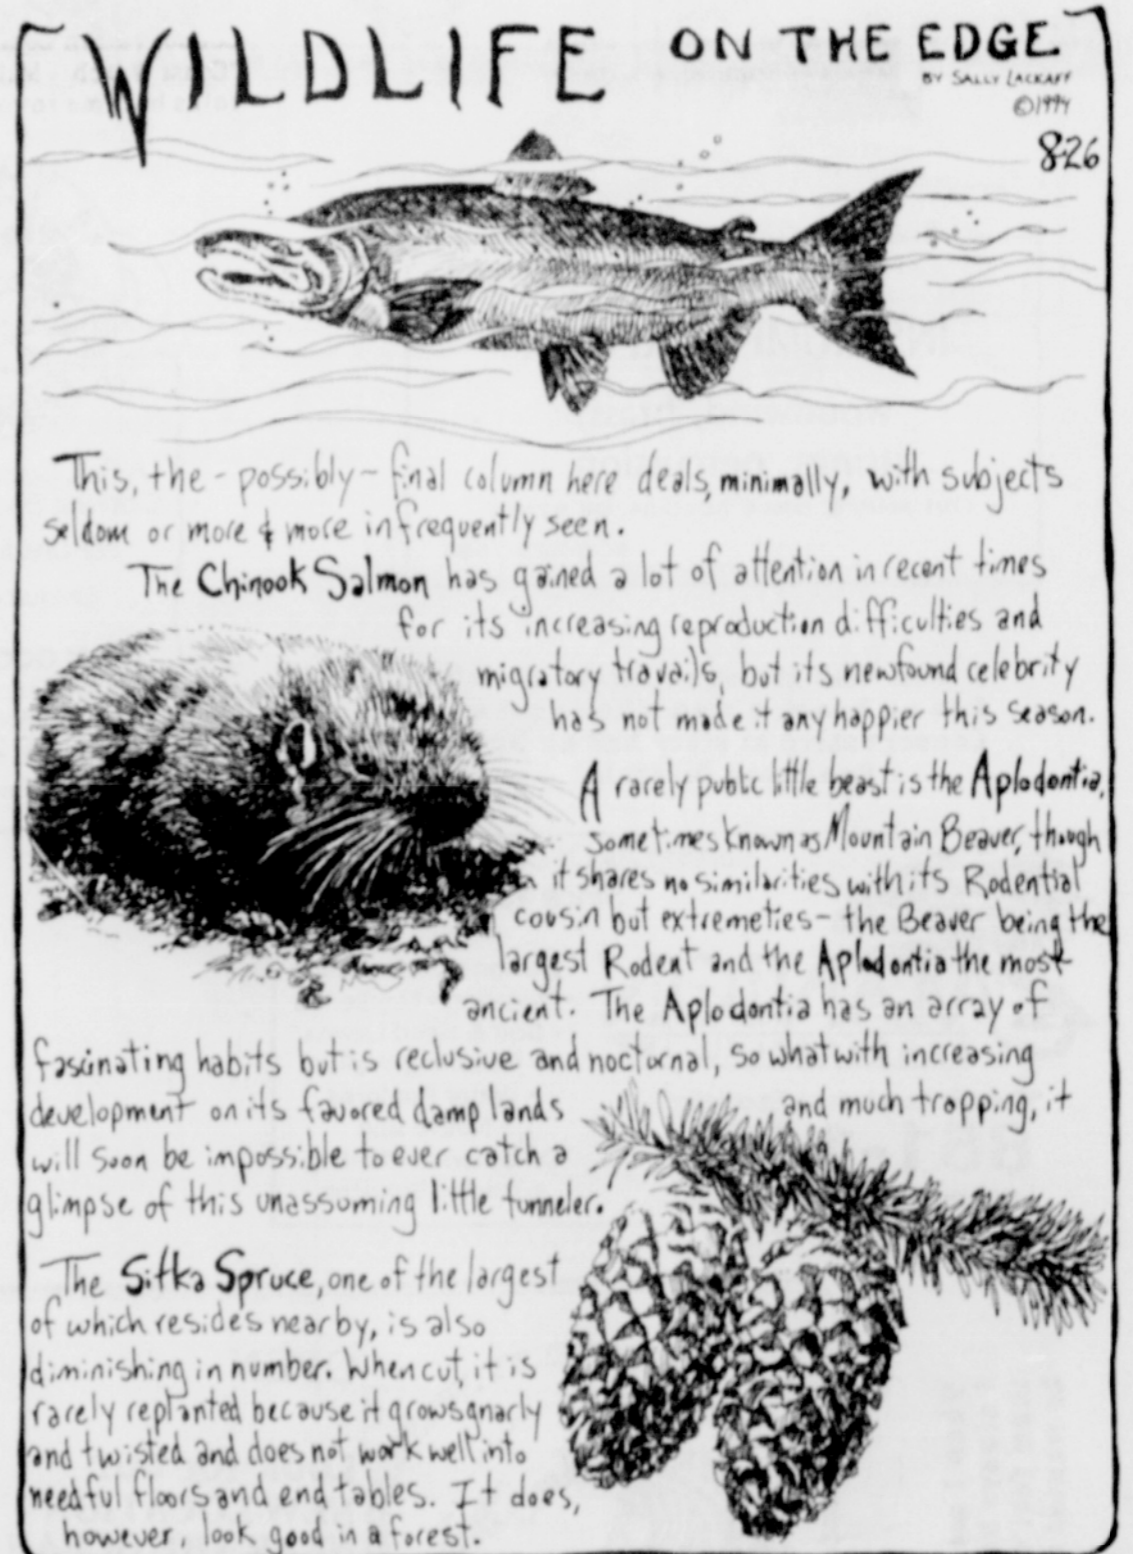 WILDLIFE ON THE EDGE
BY SALLY LACKAFF
©1994
8-26
This, the - possibly - final column here deals, minimally, with subjects
seldom or more & more infrequently seen.
The Chinook Salmon has gained a lot of attention in recent times
for its increasing reproduction difficulties and
migratory travails, but its newfound celebrity
has not made it any happier this season.
A rarely public little beast is the Aplodontia,
sometimes known as Mountain Beaver, though
it shares no similarities with its Rodential
cousin but extremeties - the Beaver being the
largest Rodent and the Aplodontia the most
ancient. The Aplodontia has an array of
fascinating habits but is reclusive and nocturnal, so what with increasing
development on its favored damp lands and much trapping, it
will soon be impossible to ever catch a
glimpse of this unassuming little tunneler.
The Sitka Spruce, one of the largest
of which resides nearby, is also
diminishing in number. When cut, it is
rarely replanted because it grows gnarly
and twisted and does not work well into
needful floors and end tables. It does,
however, look good in a forest.